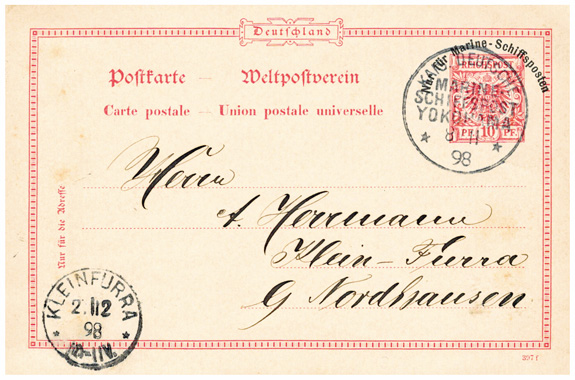 Deutschland
Nur für Marine-Schiffsposten
REICHSPOST
Postkarte — Weltpostverein
Carte postale — Union postale universelle
DEUTSCHE
MARINE
SCHIFFSPOST
PF. 10 PF.
★ 8 11 ★
98
Nur für die Adresse
Herrn
A. Herrmann
Klein-Furra
G Nordhausen
KLEINFURRA
2. 12
98
397f